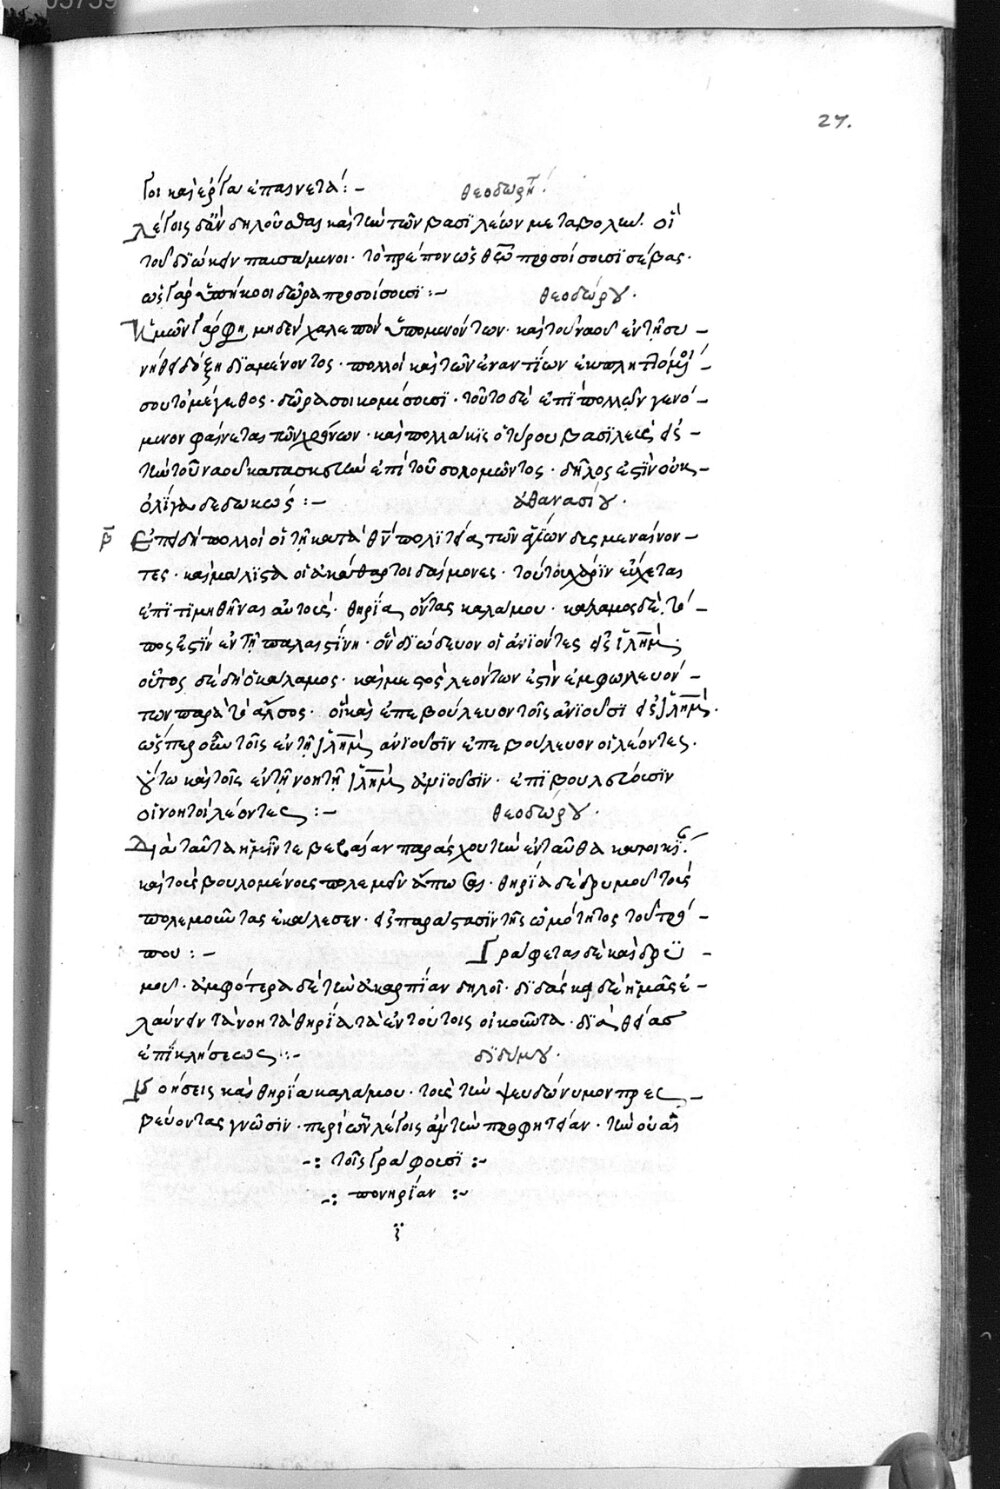 27.
γοι καὶ ἔργα ἐπαινετά :- θεοδωρήτ
λέγοις δ' ἂν δηλοῦσθαι καὶ τὴν τῶν βασιλέων μεταβολήν. οἳ
τοῦ διώκειν παυσάμενοι· τὸ πρέπον ὡς θεῷ προσοίσουσι σέβας·
ὡς γὰρ ὑπήκοοι δῶρα προσοίσουσι :- θεοδώρου.
Ἡμῶν γάρ φη, μηδὲν χαλεπὸν ὑπομενόντων· καὶ τοῦ ναοῦ ἐν τῇ συ-
νήθει δόξῃ διαμένοντος· πολλοὶ καὶ τῶν ἐναντίων ἐκπληττόμενοι
σου τὸ μέγεθος· δῶρά σοι κομίσουσι· τοῦτο δὲ ἐπὶ πολλῶν γενό-
μενον φαίνεται τῶν χρόνων· καὶ πολλάκις ὁ τύρου βασιλεὺς εἰς
τὴν τοῦ ναοῦ κατασκευὴν ἐπὶ τοῦ σολομῶντος· δῆλός ἐστιν οὐκ
ὀλίγα δεδωκώς :- ἀθανασίου.
Ἐπειδὴ πολλοὶ οἱ τῇ κατὰ θν πολιτείᾳ τῶν ἁγίων δυσμεναίνον-
τες· καὶ μάλιστα οἱ ἀκάθαρτοι δαίμονες· τούτου χάριν εὔχεται
ἐπιτιμηθῆναι αὐτούς· θηρία ὄντας καλάμου· κάλαμος δὲ τό-
πος ἐστὶν ἐν τῇ παλαιστίνῃ· ὃν διώδευον οἱ ἀνιόντες εἰς ἰλημ·
οὗτος δὲ δὴ ὁ κάλαμος· καὶ μεστὸς λεόντων ἐστὶν ἐμφωλευόν-
των παρὰ τὸ ἄλσος· οἳ καὶ ἐπεβούλευον τοῖς ἀνιοῦσι εἰς ἰλημ.
ὥσπερ οὖν τοῖς ἐν τῇ ἰλημ ἀνιοῦσιν ἐπεβούλευον οἱ λέοντες.
οὕτω καὶ τοῖς ἐν τῇ νοητῇ ἰλημ ἀνιοῦσιν· ἐπιβουλεύουσιν
οἱ νοητοὶ λέοντες :- θεοδώρου.
Διὰ ταῦτα ἡμῖν τε βεβαίαν παράσχου τὴν ἐνταῦθα κατοίκησιν
καὶ τοὺς βουλομένους πολεμεῖν ἄπωσαι· θηρία δὲ δρυμοῦ τοὺς
πολεμοῦντας ἐκάλεσεν· εἰς παράστασιν τῆς ὠμότητος τοῦ τρό-
που :- Γράφεται δὲ καὶ δρυ-
μοῦ· ἀμφότερα δὲ τὴν ἀκαρπίαν δηλοῖ· διδάσκει δὲ ἡμᾶς ἐ-
λαύνειν τὰ νοητὰ θηρία τὰ ἐν τούτοις οἰκοῦντα· διὰ θείας
ἐπικλήσεως :- διδύμου.
Νοήσεις καὶ θηρία καλάμου· τοὺς τὴν ψευδώνυμον πρεσ-
βεύοντας γνῶσιν· περὶ ὧν λέγοις ἂν τὴν προφητείαν· τὴν οὐαὶ
-: τοῖς γράφουσι :-
-: πονηρίαν :-